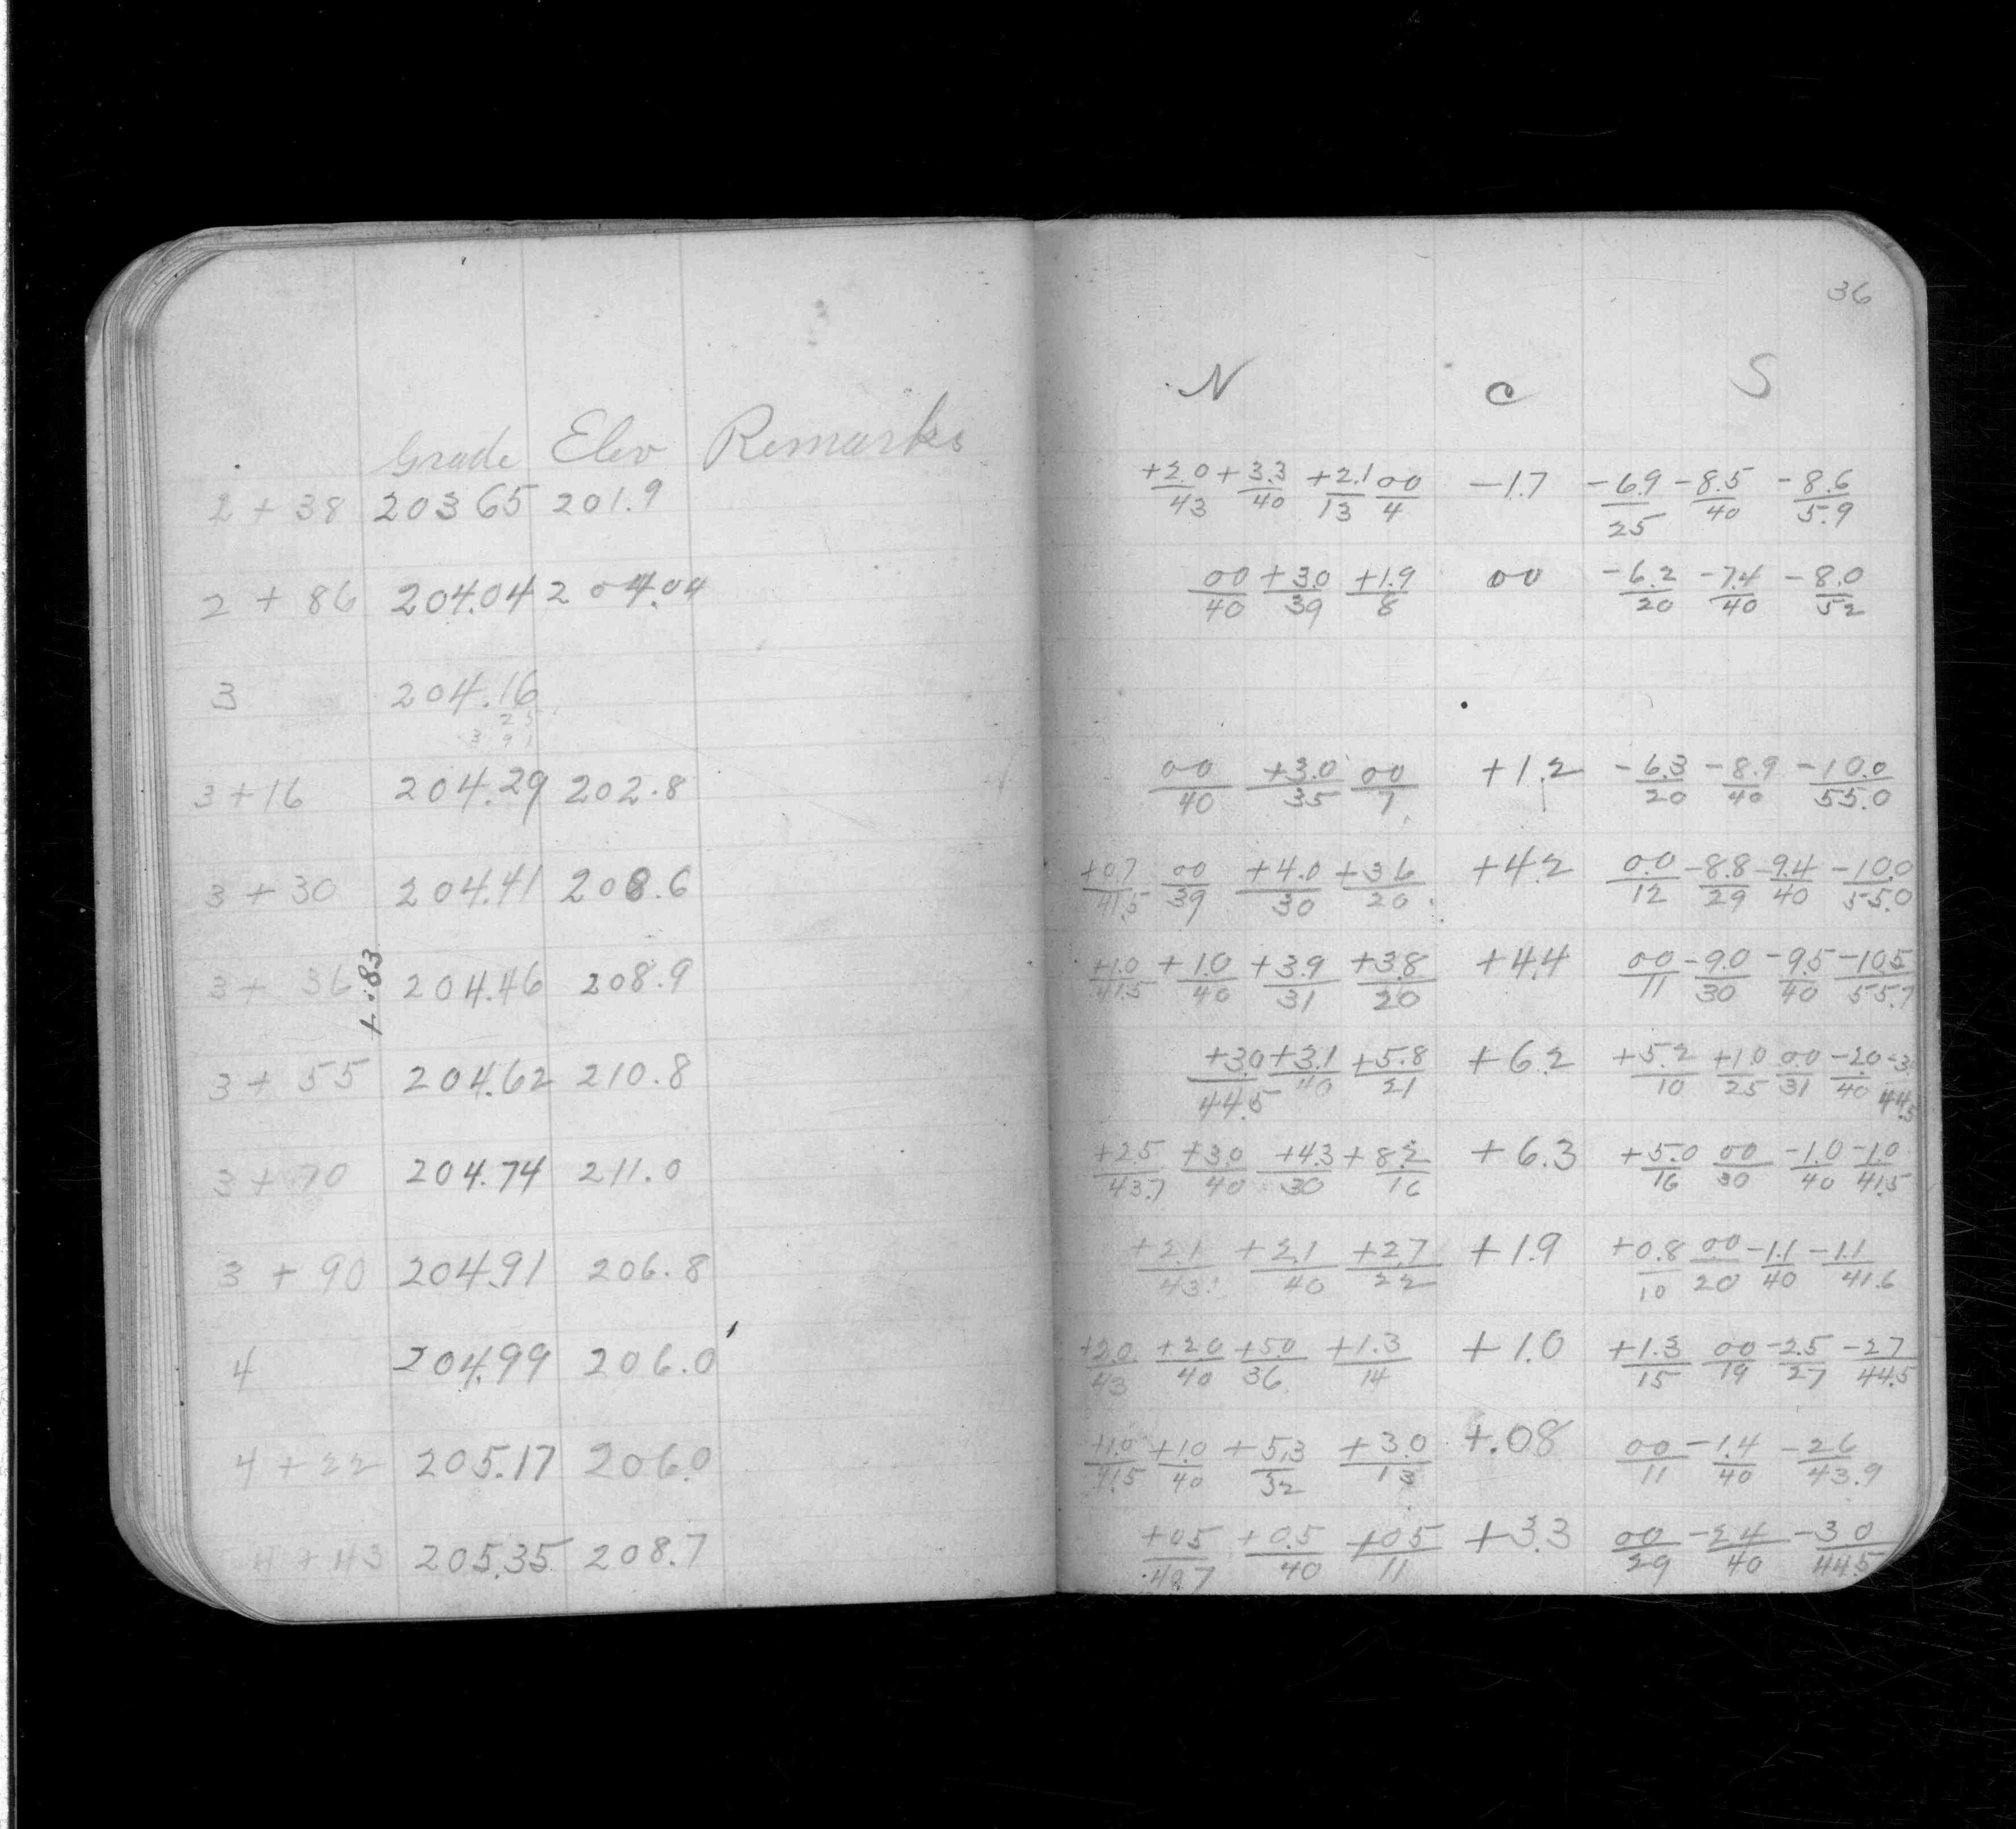 36
N C S
Grade Elev Remarks
2 + 38 203 65 201.9 +2.0/43 +3.3/40 +2.1/13 00/4 -1.7 -6.9/25 -8.5/40 -8.6/5.9
2 + 86 204.04 204.04 00/40 +3.0/39 +1.9/8 00 -6.2/20 -7.4/40 -8.0/52
3 204.16
25
3 91
3+16 204.29 202.8 00/40 +3.0/35 00/7 +1.2 -6.3/20 -8.9/40 -10.0/55.0
3 + 30 204.41 208.6 +0.7/41.5 00/39 +4.0/30 +3 6/20 +4.2 0.0/12 -8.8/29 -9.4/40 -10.0/55.0
3 + 36 204.46 208.9 +1.0/41.5 +1.0/40 +3.9/31 +3.8/20 +4.4 00/11 -9.0/30 -9.5/40 -10.5/55.7
+.83
3 + 55 204.62 210.8 +3.0/44.5 +3.1/40 +5.8/21 +6.2 +5.2/10 +1.0/25 0.0/31 -2.0/40 -3/44.5
3 + 70 204.74 211.0 +2.5/43.7 +3.0/40 +4.3/30 +8.2/16 +6.3 +5.0/16 00/30 -1.0/40 -1.0/41.5
3 + 90 204.91 206.8 +2.1/43. +2.1/40 +2.7/22 +1.9 +0.8/10 00/20 -1.1/40 -1.1/41.6
4 204.99 206.0 +2.0/43 +2.0/40 +5.0/36 +1.3/14 +1.0 +1.3/15 00/19 -2.5/27 -2.7/44.5
4 + 22 205.17 206.0 +1.0/41.5 +1.0/40 +5.3/32 +3.0/13 +.08 00/11 -1.4/40 -2.6/43.9
4 + 43 205.35 208.7 +0.5/40.7 +0.5/40 +0.5/11 +3.3 00/29 -2.4/40 -3 0/44.5